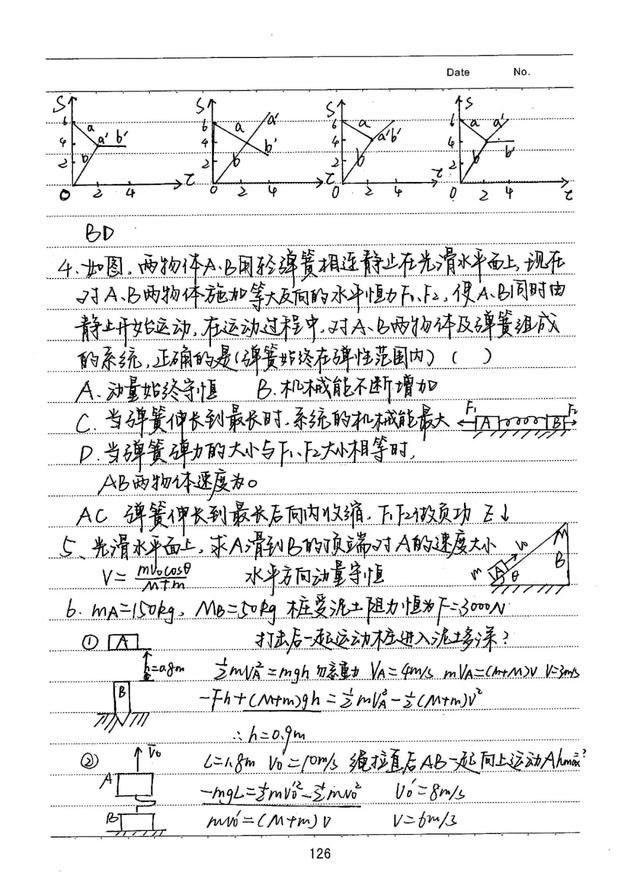 Date No.
S 6 4 2 0 2 4 t a b a' b'
S 6 4 2 0 2 4 t a b a' b'
S 6 4 2 0 2 4 t a b a'b'
S 6 4 2 0 2 4 t a b a' b'
BD
4.如图,两物体A、B用轻弹簧相连静止在光滑水平面上,现在
对A、B两物体施加等大反向的水平恒力F₁、F₂,使A、B同时由
静止开始运动,在运动过程中,对A、B两物体及弹簧组成
的系统,正确的是(弹簧始终在弹性范围内) ( )
A.动量始终守恒 B.机械能不断增加
C.当弹簧伸长到最长时,系统的机械能最大
F₁ A B F₂
D.当弹簧弹力的大小与F₁、F₂大小相等时,
AB两物体速度为0
AC 弹簧伸长到最长后向内收缩,F₁F₂做负功 E↓
5、光滑水平面上,求A滑到B的顶端时A的速度大小
V=mv₀cosθ/M+m 水平方向动量守恒
m A v₀ θ M B
6. mA=150kg, MB=50kg 桩受泥土阻力恒为F=3000N
打击后一起运动桩进入泥土多深?
① A h=0.8m B
½mVA²=mgh 勿忘重力 VA=4m/s mVA=(m+M)V V=3m/s
-Fh+(M+m)gh=½mVA²-½(M+m)v²
∴h=0.9m
② V₀ A B
L=1.8m V₀=10m/s 绳拉直后AB一起向上运动A hmax?
-mgL=½mv₀'²-½mv₀² V₀'=8m/s
mv₀'=(M+m)v V=6m/s
126